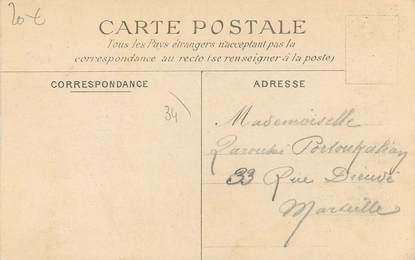 20 €
CARTE POSTALE
Tous les Pays étrangers n'acceptant pas la
correspondance au recto (se renseigner à la poste)
CORRESPONDANCE
ADRESSE
34
Mademoiselle
Portoukalian
33 Rue Dieudé
Marseille